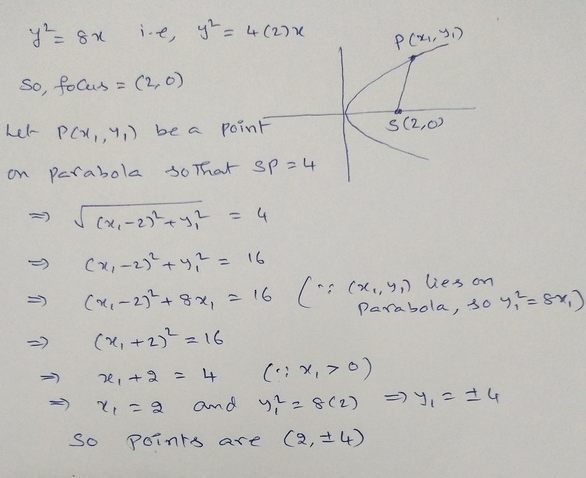 y² = 8x i.e, y² = 4(2)x
P(x₁, y₁)
So, focus = (2,0)
S(2,0)
Let P(x₁, y₁) be a point
on parabola so that SP = 4
⇒ √(x₁-2)²+y₁² = 4
⇒ (x₁-2)²+y₁² = 16
⇒ (x₁-2)²+8x₁ = 16 (∵ (x₁, y₁) lies on
parabola, so y₁²=8x₁)
⇒ (x₁+2)² = 16
⇒ x₁+2 = 4 (∵ x₁ > 0)
⇒ x₁ = 2 and y₁² = 8(2) ⇒ y₁ = ±4
So points are (2, ±4)